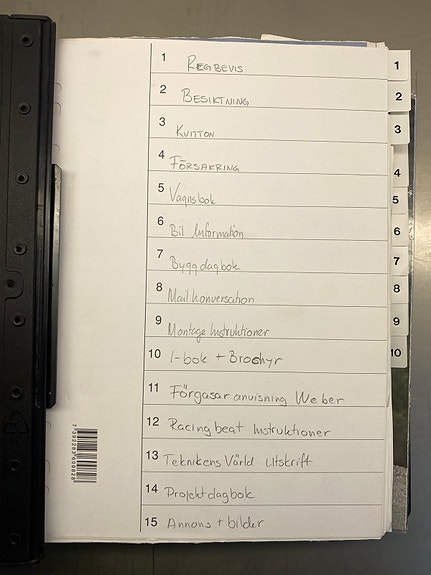 1 REGBEVIS
2 BESIKTNING
3 KVITTON
4 FÖRSÄKRING
5 Vagnsbok
6 Bil Information
7 Byggdagbok
8 Mailkonversation
9 Montage Instruktioner
10 I-bok + Broschyr
11 Förgasaranvisning Weber
12 Racing beat Instruktioner
13 Teknikens Värld Utskrift
14 Projektdagbok
15 Annons + bilder
1
2
3
4
5
6
7
8
9
10